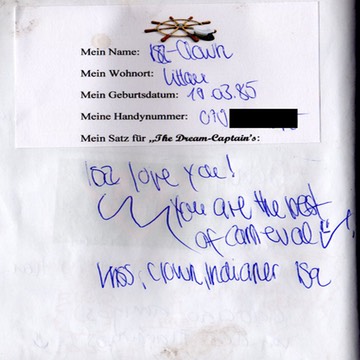 Mein Name: Isa-Clown
Mein Wohnort: Littau
Mein Geburtsdatum: 19.03.85
Meine Handynummer: 079
Mein Satz für „The Dream-Captain's:
Isa love you!
You are the best
of carneval
Kuss, Clown, Indianer Isa